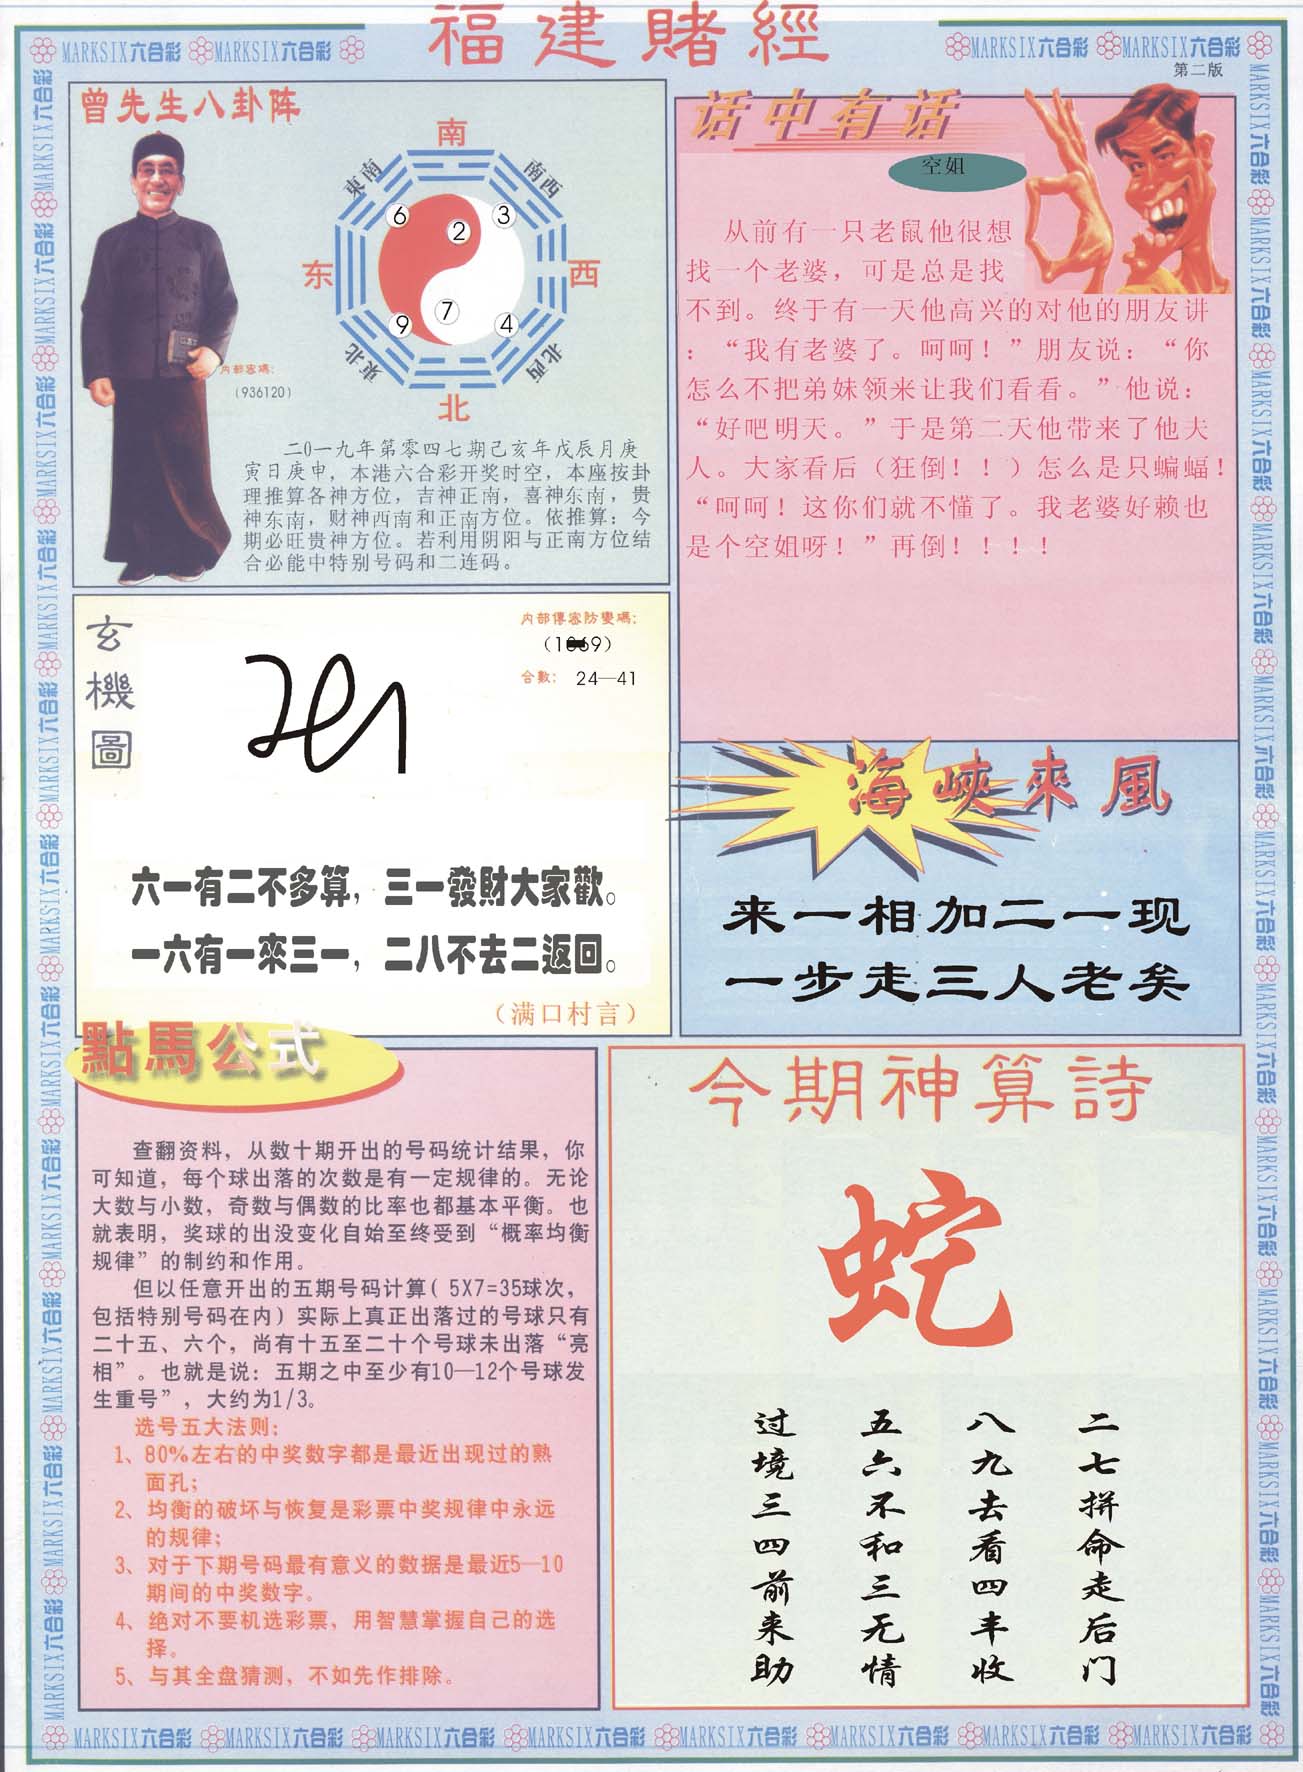 福建賭經
MARKSIX六合彩 MARKSIX六合彩
MARKSIX六合彩 MARKSIX六合彩
第二版
曾先生八卦阵
南
東南
南西
6
2
3
东
西
7
9
4
東北
北西
北
内部密碼:
(936120)
二0一九年第零四七期己亥年戊辰月庚
寅日庚申，本港六合彩开奖时空，本座按卦
理推算各神方位，吉神正南，喜神东南，贵
神东南，财神西南和正南方位。依推算：今
期必旺贵神方位。若利用阴阳与正南方位结
合必能中特别号码和二连码。
话中有话
空姐
从前有一只老鼠他很想
找一个老婆，可是总是找
不到。终于有一天他高兴的对他的朋友讲
：“我有老婆了。呵呵！”朋友说：“你
怎么不把弟妹领来让我们看看。”他说：
“好吧明天。”于是第二天他带来了他夫
人。大家看后（狂倒！！）怎么是只蝙蝠！
“呵呵！这你们就不懂了。我老婆好赖也
是个空姐呀！”再倒！！！！
玄機圖
内部傳密防變碼:
合數: 24—41
六一有二不多算，三一發財大家歡。
一六有一來三一，二八不去二返回。
（满口村言）
海峽來風
来一相加二一现
一步走三人老矣
點馬公式
查翻资料，从数十期开出的号码统计结果，你
可知道，每个球出落的次数是有一定规律的。无论
大数与小数，奇数与偶数的比率也都基本平衡。也
就表明，奖球的出没变化自始至终受到“概率均衡
规律”的制约和作用。
但以任意开出的五期号码计算( 5X7=35球次，
包括特别号码在内) 实际上真正出落过的号球只有
二十五、六个，尚有十五至二十个号球未出落“亮
相”。也就是说：五期之中至少有10—12个号球发
生重号”，大约为1/3。
选号五大法则：
1、80%左右的中奖数字都是最近出现过的熟
面孔；
2、均衡的破坏与恢复是彩票中奖规律中永远
的规律；
3、对于下期号码最有意义的数据是最近5—10
期间的中奖数字。
4、绝对不要机选彩票，用智慧掌握自己的选
择。
5、与其全盘猜测，不如先作排除。
今期神算詩
蛇
二七拼命走后门
八九去看四丰收
五六不和三无情
过境三四前来助
MARKSIX六合彩 MARKSIX六合彩 MARKSIX六合彩 MARKSIX六合彩 MARKSIX六合彩 MARKSIX六合彩 MARKSIX六合彩 MARKSIX六合彩